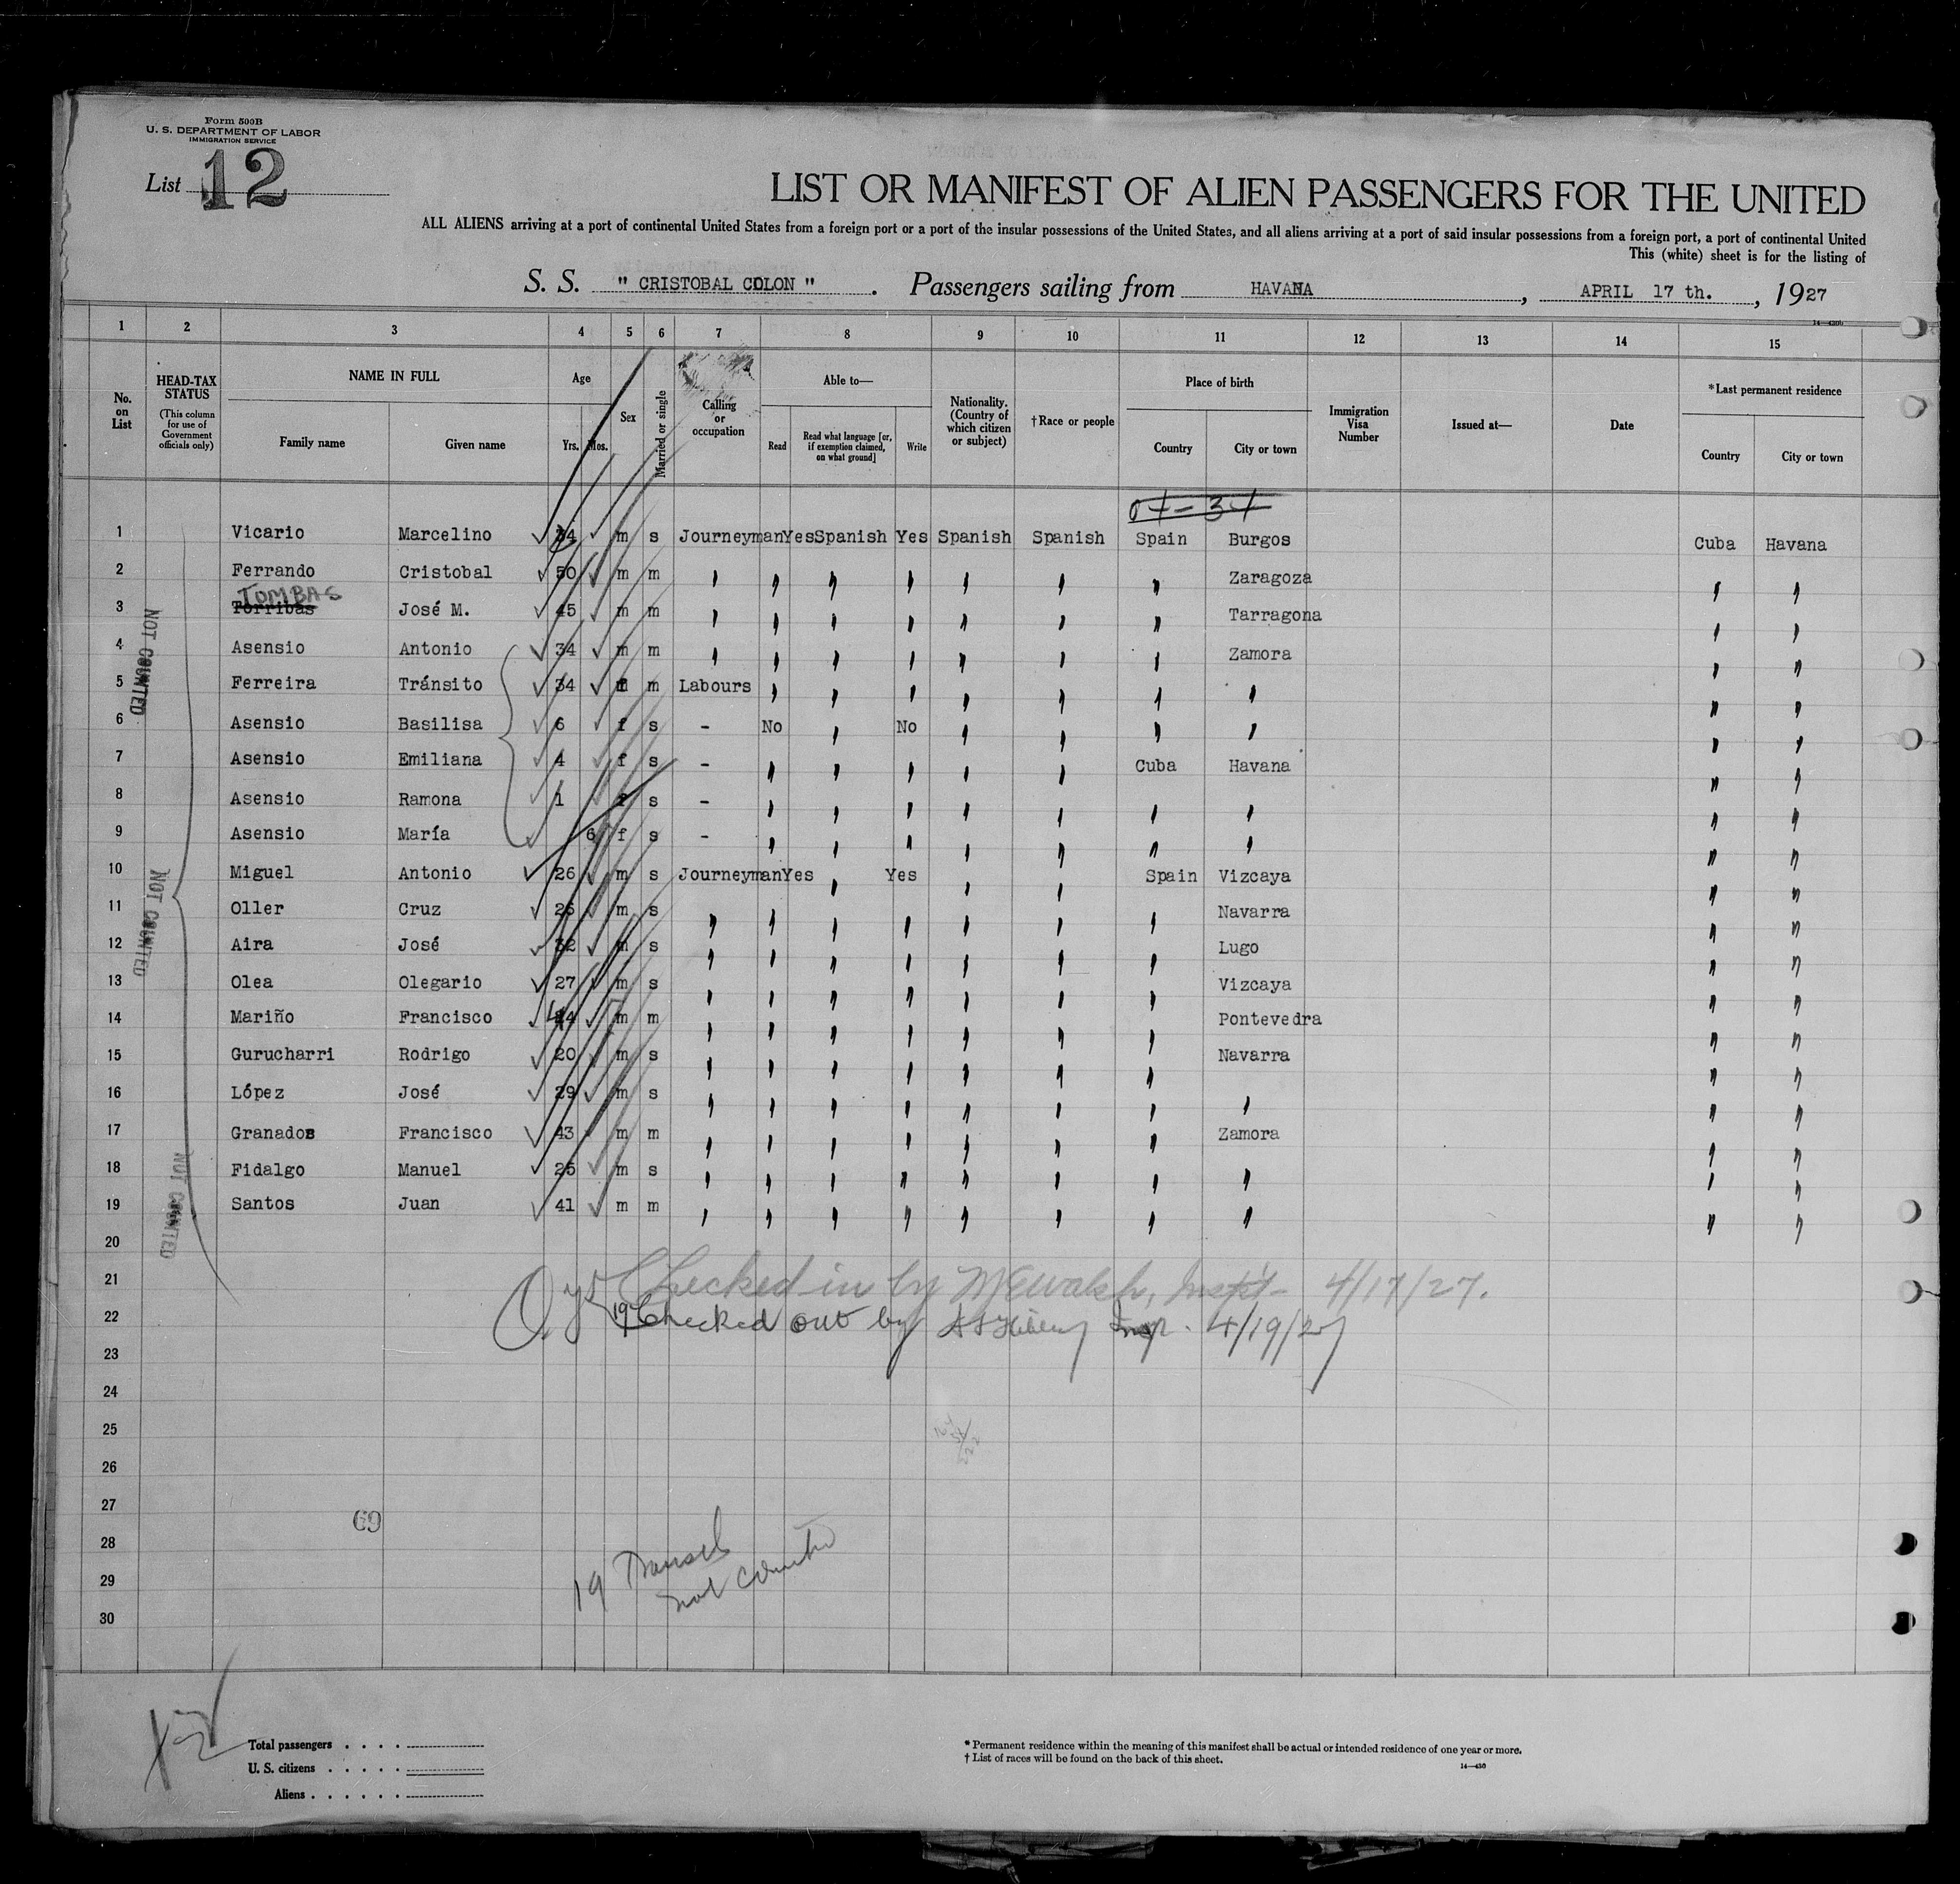 Form 500B
U. S. DEPARTMENT OF LABOR
IMMIGRATION SERVICE
List 12
LIST OR MANIFEST OF ALIEN PASSENGERS FOR THE UNITED
ALL ALIENS arriving at a port of continental United States from a foreign port or a port of the insular possessions of the United States, and all aliens arriving at a port of said insular possessions from a foreign port, a port of continental United
This (white) sheet is for the listing of
S. S. " CRISTOBAL COLON ". Passengers sailing from HAVANA, APRIL 17 th., 1927
1 2 3 4 5 6 7 8 9 10 11 12 13 14 15
No. on List
HEAD-TAX STATUS
(This column for use of Government officials only)
NAME IN FULL
Family name Given name
Age
Yrs. Mos.
Sex
Married or single
Calling or occupation
Able to—
Read
Read what language [or, if exemption claimed, on what ground]
Write
Nationality. (Country of which citizen or subject)
† Race or people
Place of birth
Country City or town
Immigration Visa Number
Issued at—
Date
*Last permanent residence
Country City or town
1 Vicario Marcelino 34 m s Journeyman Yes Spanish Yes Spanish Spanish Spain Burgos Cuba Havana
2 Ferrando Cristobal 50 m m " " " " " " " Zaragoza " "
TOMBAS
3 Torribas José M. 45 m m " " " " " " " Tarragona " "
4 Asensio Antonio 34 m m " " " " " " " Zamora " "
5 Ferreira Tránsito 34 m Labours " " " " " " " " "
6 Asensio Basilisa 6 f s - No " No " " " " " "
7 Asensio Emiliana 4 f s - " " " " " Cuba Havana " "
8 Asensio Ramona 1 f s - " " " " " " " " "
9 Asensio María 6 f s - " " " " " " " " "
10 Miguel Antonio 26 m s Journeyman Yes " Yes " " Spain Vizcaya " "
11 Oller Cruz 26 m s " " " " " " " Navarra " "
12 Aira José 32 m s " " " " " " " Lugo " "
13 Olea Olegario 27 m s " " " " " " " Vizcaya " "
14 Mariño Francisco 44 m m " " " " " " " Pontevedra " "
15 Gurucharri Rodrigo 20 m s " " " " " " " Navarra " "
16 López José 29 m s " " " " " " " " " "
17 Granados Francisco 43 m m " " " " " " " Zamora " "
18 Fidalgo Manuel 25 m s " " " " " " " " " "
19 Santos Juan 41 m m " " " " " " " " " "
20
21 Checked in by McWalsh, Inspt- 4/17/27.
22 19 Checked out by Insp. 4/19/27
23
24
25
26
27
69
28
29
30
19 Transit
not counted
NOT COUNTED
NOT COUNTED
NOT COUNTED
Total passengers . . . .
U. S. citizens . . . . .
Aliens . . . . . .
* Permanent residence within the meaning of this manifest shall be actual or intended residence of one year or more.
† List of races will be found on the back of this sheet.
14—430